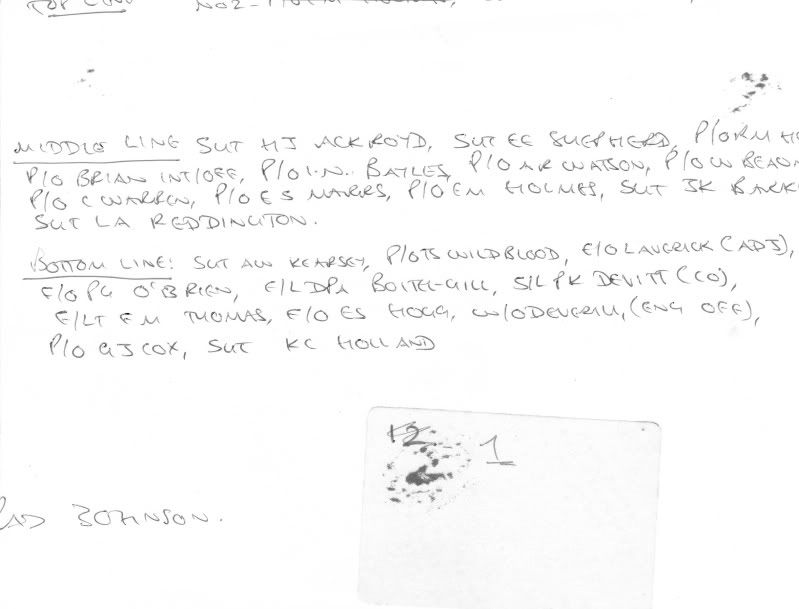 TOP LINE NO2-
MIDDLE LINE SGT HJ ACKROYD, SGT EE SHEPHERD, P/O RM H
P/O BRIAN INT/OFF, P/O I.N. BAYLES, P/O AR WATSON, P/O W BEAUM
P/O C WARREN, P/O E S MARRS, P/O EM HOLMES, SGT JK BARK
SGT LA REDDINGTON.
BOTTOM LINE: SGT AW KEARSEY, P/O TS WILDBLOOD, F/O LAVERICK (ADJ),
F/O PG O'BRIEN, F/L DPA BOITEL-GILL, S/L PK DEVITT (CO),
F/LT E M THOMAS, F/O ES HOGG, W/O DEVERILL, (ENG OFF),
P/O GJ COX, SGT KC HOLLAND
12 1
JOHNSON.